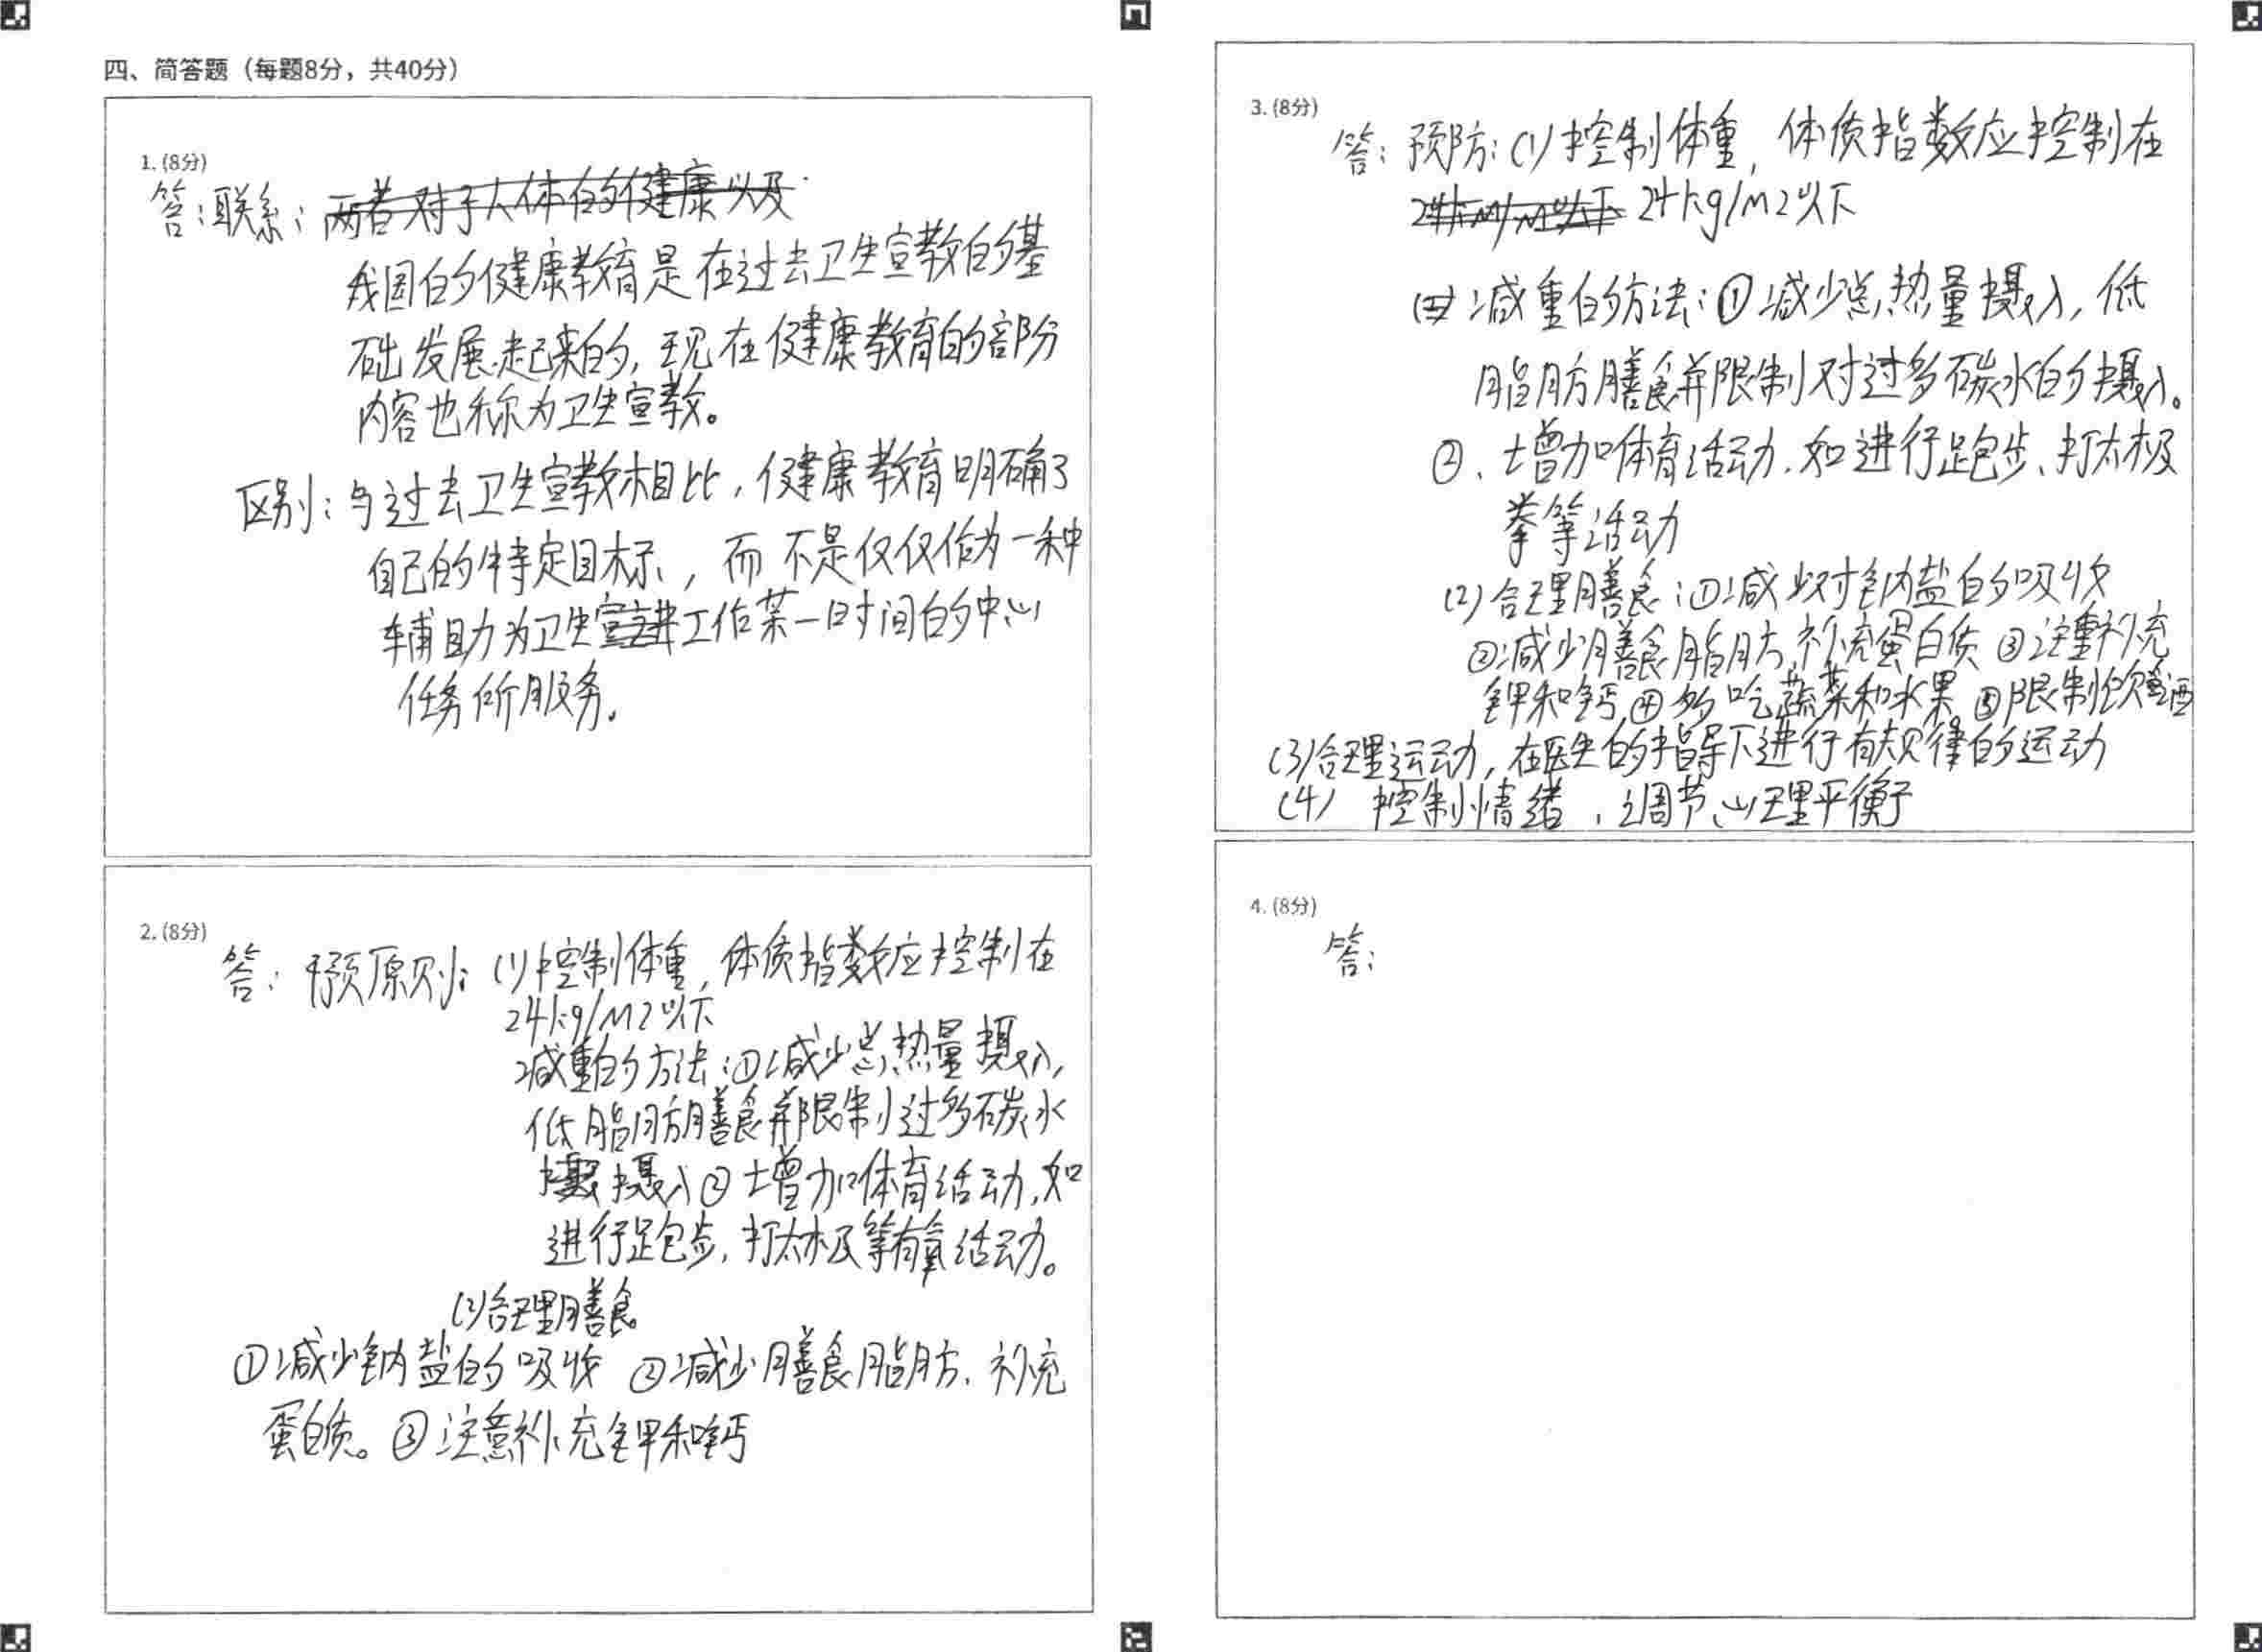 四、简答题（每题8分，共40分）
1. (8分)
答：联系：两者对于人体的健康以及
我国的健康教育是在过去卫生宣教的基
础发展起来的，现在健康教育的部分
内容也称为卫生宣教。
区别：与过去卫生宣教相比，健康教育明确了
自己的特定目标，而不是仅仅作为一种
辅助为卫生宣讲工作某一时间的中心
任务所服务。
2. (8分)
答：干预原则：(1)控制体重，体质指数应控制在
24kg/m2以下
减重的方法：①减少总热量摄入，
低脂肪膳食并限制过多碳水
摄入②增加体育活动，如
进行跑步，打太极等有氧活动。
(2)合理膳食
①减少钠盐的吸收 ②减少膳食脂肪，补充
蛋白质。③注意补充钾和钙
3. (8分)
答：预防：(1)控制体重，体质指数应控制在
24kg/m2以下
减重的方法：①减少总热量摄入，低
脂肪膳食并限制对过多碳水的摄入。
②、增加体育活动，如进行跑步、打太极
拳等活动
(2)合理膳食：①减少对钠盐的吸收
②减少膳食脂肪，补充蛋白质 ③注重补充
钾和钙 ④多吃蔬菜和水果 ⑤限制饮酒
(3)合理运动，在医生的指导下进行有规律的运动
(4) 控制情绪，调节心理平衡
4. (8分)
答：